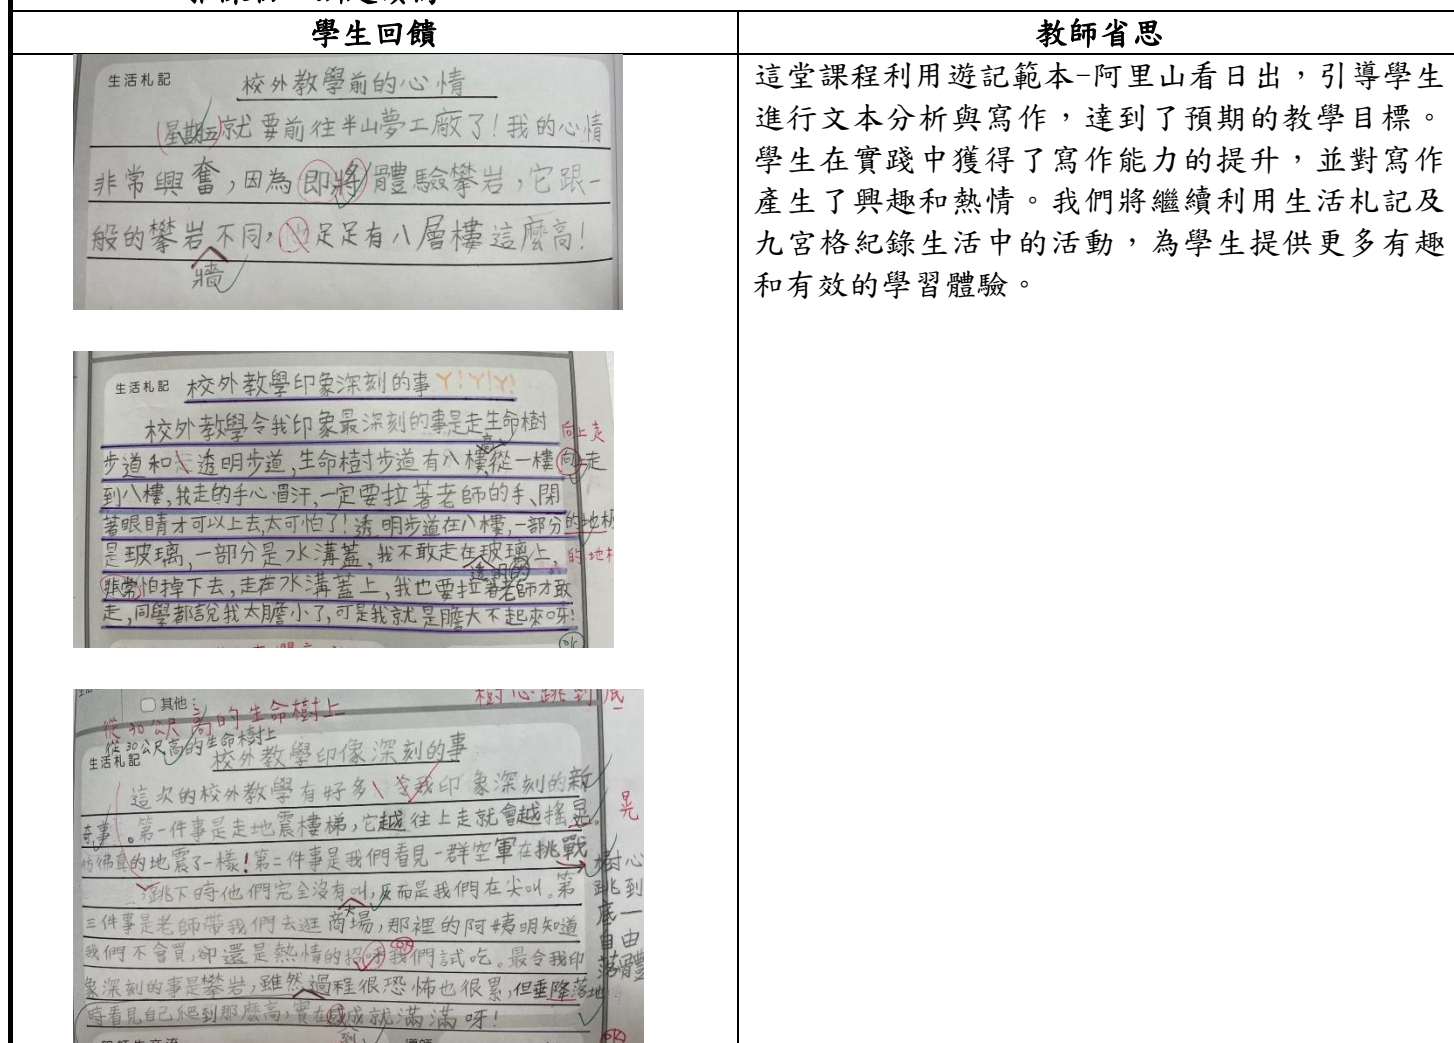 學生回饋
教師省思
生活札記 校外教學前的心情
(星期五)就要前往半山夢工廠了!我的心情
非常興奮,因為即將體驗攀岩,它跟一
般的攀岩不同,足足有八層樓這麼高!
牆
生活札記 校外教學印象深刻的事 Y!Y!Y!
校外教學令我印象最深刻的事是走生命樹
向上走
高
步道和透明步道,生命樹步道有八樓,從一樓向走
到八樓,我走的手心冒汗,一定要拉著老師的手、閉
著眼睛才可以上去,太可怕了!透明步道在八樓,一部分的地板
是玻璃,一部分是水溝蓋,我不敢走在玻璃上,
的地板
透明的
非常怕掉下去,走在水溝蓋上,我也要拉著老師才敢
走,同學都說我太膽小了,可是我就是膽大不起來呀!
OK
其他:
樹心跳到底
從30公尺高的生命樹上
從30公尺高的生命樹上
生活札記 校外教學印像深刻的事
這次的校外教學有好多令我印象深刻的新
奇事。第一件事是走地震樓梯,它越往上走就會越搖晃。
晃
彷彿真的地震了一樣!第二件事是我們看見一群空軍在挑戰
樹心跳到底一自由落體
跳下時他們完全沒有叫,反而是我們在尖叫。第
三件事是老師帶我們去逛商場,那裡的阿姨明知道
我們不會買,卻還是熱情的招呼我們試吃。最令我印
象深刻的事是攀岩,雖然過程很恐怖也很累,但垂降落地
時看見自己爬到那麼高,實在感成就滿滿呀!
到
導師
這堂課程利用遊記範本-阿里山看日出,引導學生
進行文本分析與寫作,達到了預期的教學目標。
學生在實踐中獲得了寫作能力的提升,並對寫作
產生了興趣和熱情。我們將繼續利用生活札記及
九宮格紀錄生活中的活動,為學生提供更多有趣
和有效的學習體驗。